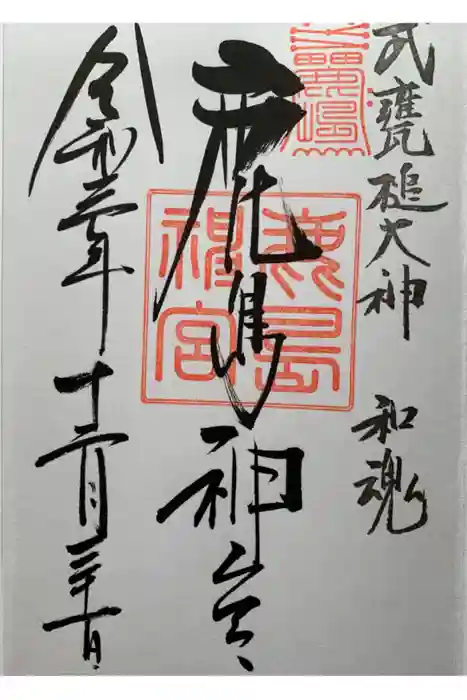 武甕槌大神 和魂
鹿島神宮
鹿島神宮
令和三年十二月三十一日